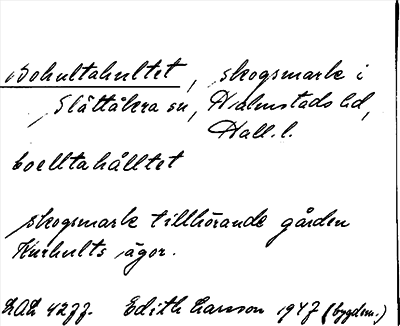 Bohultahultet, skogsmark i
Slättåkra sn, Halmstads hd,
Hall. l.
boelltahålltet
skogsmark tillhörande gården
Kurhults ägor.
LAL 4277. Edith Larsson 1947 (bygdem.)